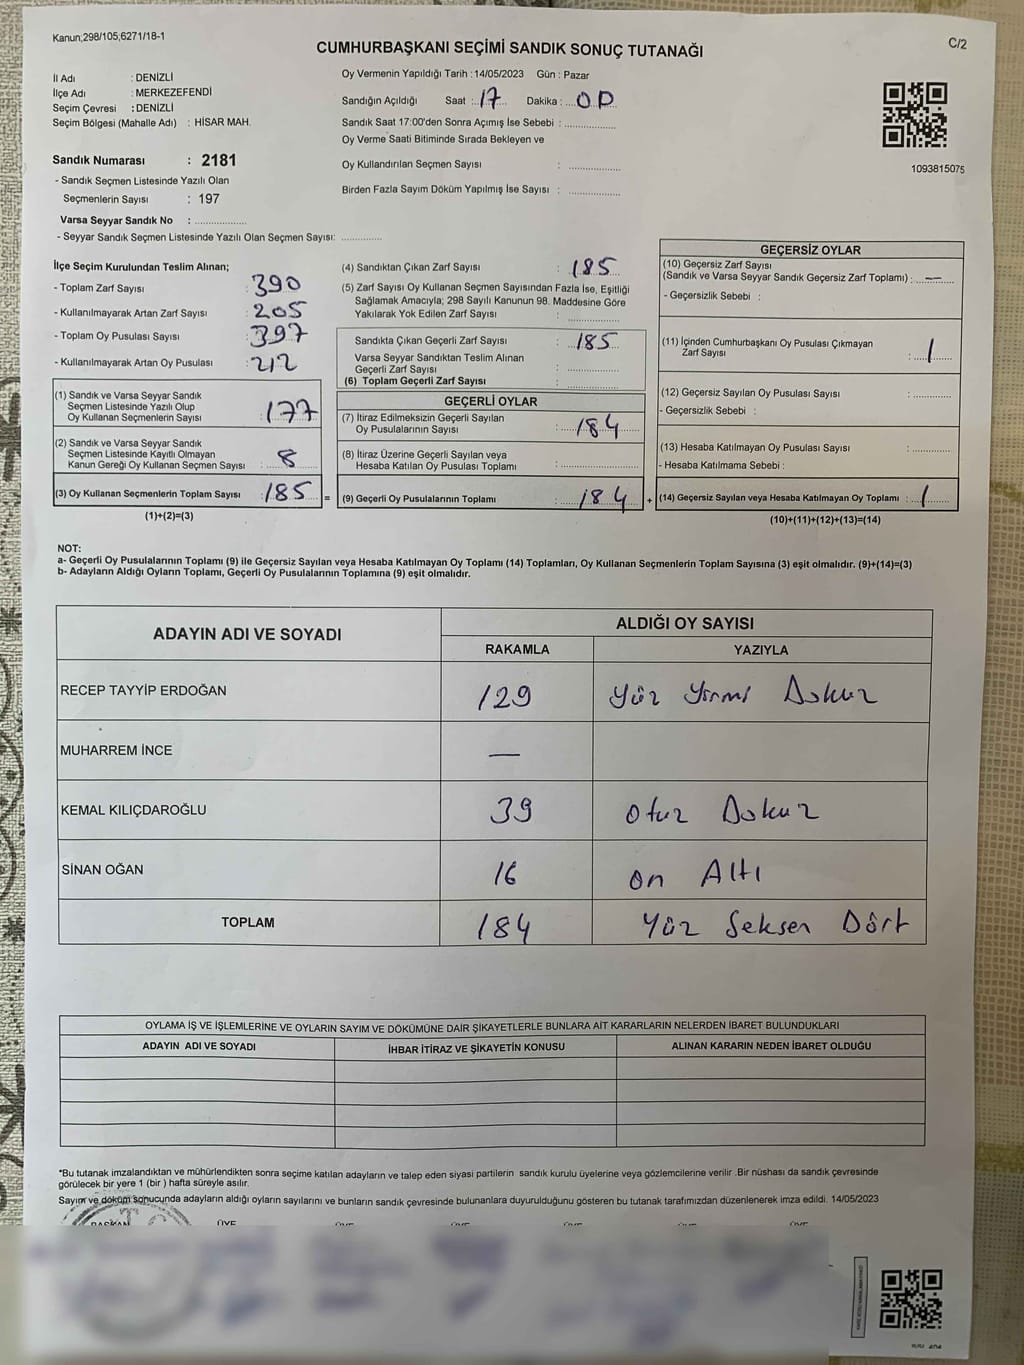 Kanun;298/105;6271/18-1
C/2
CUMHURBAŞKANI SEÇİMİ SANDIK SONUÇ TUTANAĞI
İl Adı : DENİZLİ
İlçe Adı : MERKEZEFENDİ
Seçim Çevresi : DENİZLİ
Seçim Bölgesi (Mahalle Adı) : HİSAR MAH.
Sandık Numarası : 2181
- Sandık Seçmen Listesinde Yazılı Olan
Seçmenlerin Sayısı : 197
Varsa Seyyar Sandık No : ....................
- Seyyar Sandık Seçmen Listesinde Yazılı Olan Seçmen Sayısı: ...............
Oy Vermenin Yapıldığı Tarih :14/05/2023 Gün : Pazar
Sandığın Açıldığı Saat : 17 Dakika : 00
Sandık Saat 17:00'den Sonra Açımış İse Sebebi : ...................
Oy Verme Saati Bitiminde Sırada Bekleyen ve
Oy Kullandırılan Seçmen Sayısı : ...................
Birden Fazla Sayım Döküm Yapılmış İse Sayısı : ...................
1093815075
İlçe Seçim Kurulundan Teslim Alınan;
- Toplam Zarf Sayısı : 390
- Kullanılmayarak Artan Zarf Sayısı : 205
- Toplam Oy Pusulası Sayısı : 397
- Kullanılmayarak Artan Oy Pusulası : 212
(1) Sandık ve Varsa Seyyar Sandık
Seçmen Listesinde Yazılı Olup
Oy Kullanan Seçmenlerin Sayısı : 177
(2) Sandık ve Varsa Seyyar Sandık
Seçmen Listesinde Kayıtlı Olmayan
Kanun Gereği Oy Kullanan Seçmen Sayısı : 8
(3) Oy Kullanan Seçmenlerin Toplam Sayısı : 185 =
(1)+(2)=(3)
(4) Sandıktan Çıkan Zarf Sayısı : 185
(5) Zarf Sayısı Oy Kullanan Seçmen Sayısından Fazla İse, Eşitliği
Sağlamak Amacıyla; 298 Sayılı Kanunun 98. Maddesine Göre
Yakılarak Yok Edilen Zarf Sayısı : ...................
Sandıkta Çıkan Geçerli Zarf Sayısı : 185
Varsa Seyyar Sandıktan Teslim Alınan
Geçerli Zarf Sayısı : ...................
(6) Toplam Geçerli Zarf Sayısı : ...................
GEÇERLİ OYLAR
(7) İtiraz Edilmeksizin Geçerli Sayılan
Oy Pusulalarının Sayısı : 184
(8) İtiraz Üzerine Geçerli Sayılan veya
Hesaba Katılan Oy Pusulası Toplamı : ...................
(9) Geçerli Oy Pusulalarının Toplamı : 184 +
GEÇERSİZ OYLAR
(10) Geçersiz Zarf Sayısı
(Sandık ve Varsa Seyyar Sandık Geçersiz Zarf Toplamı) : —
- Geçersizlik Sebebi :
(11) İçinden Cumhurbaşkanı Oy Pusulası Çıkmayan
Zarf Sayısı : 1
(12) Geçersiz Sayılan Oy Pusulası Sayısı : ...............
- Geçersizlik Sebebi :
(13) Hesaba Katılmayan Oy Pusulası Sayısı : ...............
- Hesaba Katılmama Sebebi :
(14) Geçersiz Sayılan veya Hesaba Katılmayan Oy Toplamı : 1
(10)+(11)+(12)+(13)=(14)
NOT:
a- Geçerli Oy Pusulalarının Toplamı (9) ile Geçersiz Sayılan veya Hesaba Katılmayan Oy Toplamı (14) Toplamları, Oy Kullanan Seçmenlerin Toplam Sayısına (3) eşit olmalıdır. (9)+(14)=(3)
b- Adayların Aldığı Oyların Toplamı, Geçerli Oy Pusulalarının Toplamına (9) eşit olmalıdır.
ADAYIN ADI VE SOYADI
ALDIĞI OY SAYISI
RAKAMLA YAZIYLA
RECEP TAYYİP ERDOĞAN 129 Yüz Yirmi Dokuz
MUHARREM İNCE —
KEMAL KILIÇDAROĞLU 39 Otuz Dokuz
SİNAN OĞAN 16 On Altı
TOPLAM 184 Yüz Seksen Dört
OYLAMA İŞ VE İŞLEMLERİNE VE OYLARIN SAYIM VE DÖKÜMÜNE DAİR ŞİKAYETLERLE BUNLARA AİT KARARLARIN NELERDEN İBARET BULUNDUKLARI
ADAYIN ADI VE SOYADI İHBAR İTİRAZ VE ŞİKAYETİN KONUSU ALINAN KARARIN NEDEN İBARET OLDUĞU
*Bu tutanak imzalandıktan ve mühürlendikten sonra seçime katılan adayların ve talep eden siyasi partilerin sandık kurulu üyelerine veya gözlemcilerine verilir .Bir nüshası da sandık çevresinde
görülecek bir yere 1 (bir ) hafta süreyle asılır.
Sayım ve döküm sonucunda adayların aldığı oyların sayılarını ve bunların sandık çevresinde bulunanlara duyurulduğunu gösteren bu tutanak tarafımızdan düzenlenerek imza edildi. 14/05/2023
BAŞKAN ÜYE ÜYE ÜYE ÜYE ÜYE ÜYE
T C